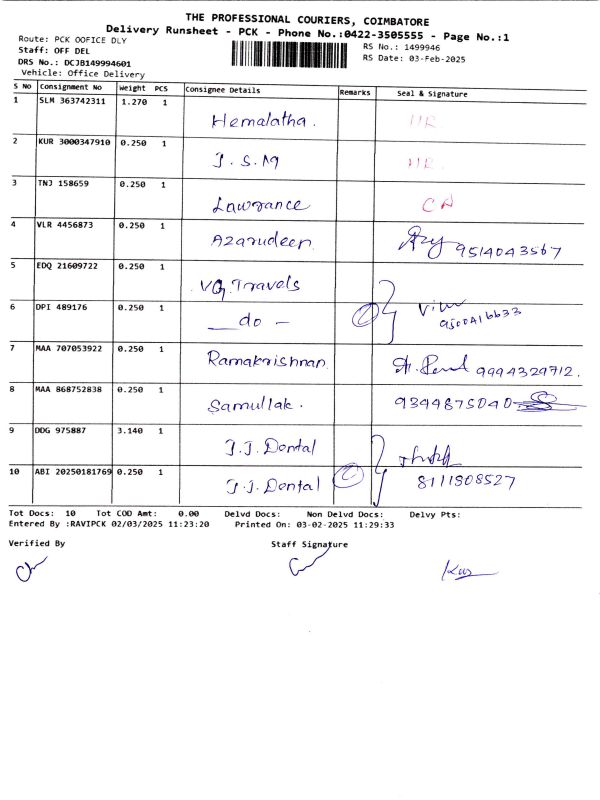 THE PROFESSIONAL COURIERS, COIMBATORE
Delivery Runsheet - PCK - Phone No.:0422-3505555 - Page No.:1
Route: PCK OOFICE DLY
RS No.: 1499946
Staff: OFF DEL
RS Date: 03-Feb-2025
DRS No.: DCJB149994601
Vehicle: Office Delivery
S No Consignment No Weight PCS Consignee Details Remarks Seal & Signature
1 SLM 363742311 1.270 1 Hemalatha. HR
2 KUR 3000347910 0.250 1 J.S.M HR
3 TNJ 158659 0.250 1 Lawrance CA
4 VLR 4456873 0.250 1 Azarudeen 9514043567
5 EDQ 21609722 0.250 1 VG Travels
6 DPI 489176 0.250 1 — do — 9500416633
7 MAA 707053922 0.250 1 Ramakrishnan 9994329712.
8 MAA 868752838 0.250 1 Samullak. 9344875040
9 DDG 975887 3.140 1 J.J. Dental
10 ABI 20250181769 0.250 1 J.J. Dental 8111808527
Tot Docs: 10 Tot COD Amt: 0.00 Delvd Docs: Non Delvd Docs: Delvy Pts:
Entered By :RAVIPCK 02/03/2025 11:23:20 Printed On: 03-02-2025 11:29:33
Verified By Staff Signature